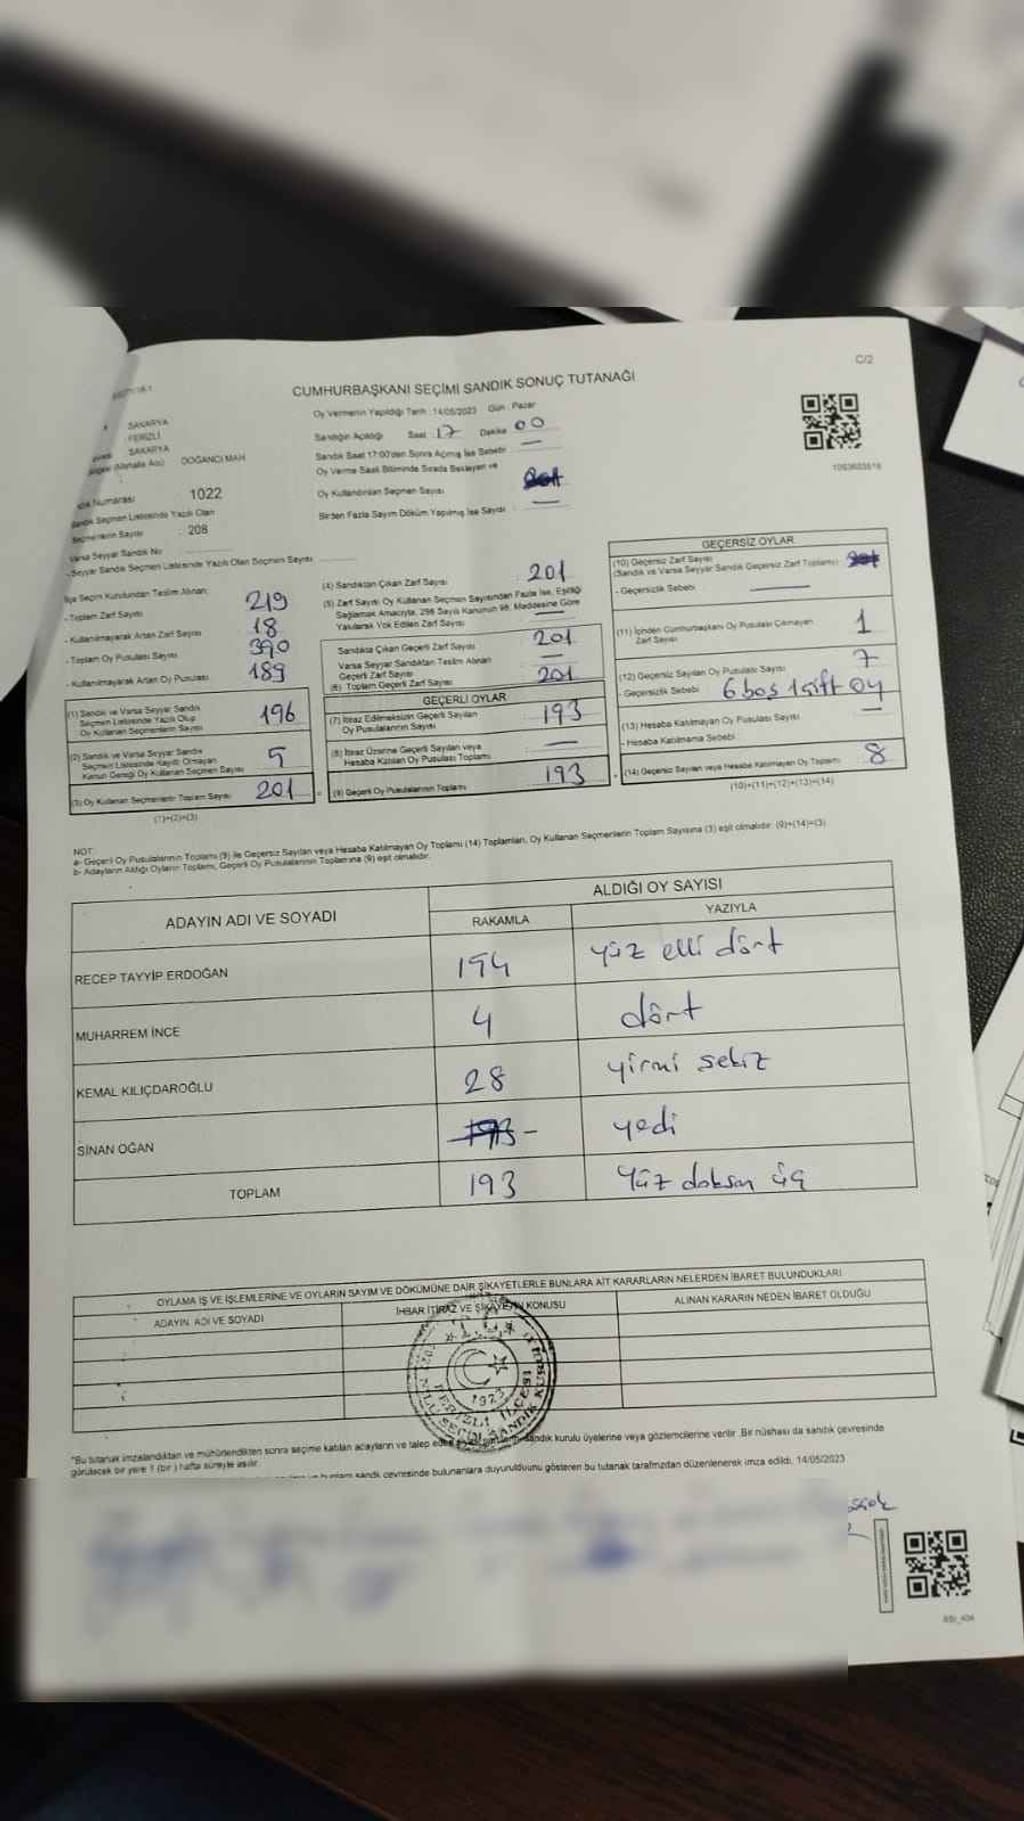 C/2
CUMHURBAŞKANI SEÇİMİ SANDIK SONUÇ TUTANAĞI
SAKARYA
FERİZLİ
SAKARYA
(Mahalle Adı) DOĞANCI MAH
Numarası 1022
Sandık Seçmen Listesinde Yazılı Olan
Seçmenlerin Sayısı : 208
Varsa Seyyar Sandık No
Seyyar Sandık Seçmen Listesinde Yazılı Olan Seçmen Sayısı
Oy Vermenin Yapıldığı Tarih : 14/05/2023 Gün : Pazar
Sandığın Açıldığı Saat 17 Dakika 00
Sandık Saat 17:00'den Sonra Açılmış İse Sebebi : —
Oy Verme Saati Bitiminde Sırada Bekleyen ve
Oy Kullandırılan Seçmen Sayısı
Birden Fazla Sayım Döküm Yapılmış İse Sayısı : —
İlçe Seçim Kurulundan Teslim Alınan
- Toplam Zarf Sayısı 219
- Kullanılmayarak Artan Zarf Sayısı 18
- Toplam Oy Pusulası Sayısı 390
- Kullanılmayarak Artan Oy Pusulası 189
(1) Sandık ve Varsa Seyyar Sandık
Seçmen Listesinde Yazılı Olup
Oy Kullanan Seçmenlerin Sayısı 196
(2) Sandık ve Varsa Seyyar Sandık
Seçmen Listesinde Kayıtlı Olmayan
Kanun Gereği Oy Kullanan Seçmen Sayısı 5
(3) Oy Kullanan Seçmenlerin Toplam Sayısı 201
(1)+(2)=(3)
(4) Sandıktan Çıkan Zarf Sayısı : 201
(5) Zarf Sayısı Oy Kullanan Seçmen Sayısından Fazla İse, Eşitliği
Sağlamak Amacıyla, 298 Sayılı Kanunun 98. Maddesine Göre
Yakılarak Yok Edilen Zarf Sayısı : —
Sandıkta Çıkan Geçerli Zarf Sayısı 201
Varsa Seyyar Sandıktan Teslim Alınan
Geçerli Zarf Sayısı —
(6) Toplam Geçerli Zarf Sayısı 201
GEÇERLİ OYLAR
(7) İtiraz Edilmeksizin Geçerli Sayılan
Oy Pusulalarının Sayısı 193
(8) İtiraz Üzerine Geçerli Sayılan veya
Hesaba Katılan Oy Pusulası Toplamı —
(9) Geçerli Oy Pusulalarının Toplamı 193
GEÇERSİZ OYLAR
(10) Geçersiz Zarf Sayısı
(Sandık ve Varsa Seyyar Sandık Geçersiz Zarf Toplamı)
- Geçersizlik Sebebi : —
(11) İçinden Cumhurbaşkanı Oy Pusulası Çıkmayan
Zarf Sayısı 1
(12) Geçersiz Sayılan Oy Pusulası Sayısı 7
- Geçersizlik Sebebi 6 boş 1 çift oy
(13) Hesaba Katılmayan Oy Pusulası Sayısı —
- Hesaba Katılmama Sebebi
(14) Geçersiz Sayılan veya Hesaba Katılmayan Oy Toplamı 8
(10)+(11)+(12)+(13)=(14)
NOT:
a- Geçerli Oy Pusulalarının Toplamı (9) ile Geçersiz Sayılan veya Hesaba Katılmayan Oy Toplamı (14) Toplamları, Oy Kullanan Seçmenlerin Toplam Sayısına (3) eşit olmalıdır. (9)+(14)=(3)
b- Adayların Aldığı Oyların Toplamı, Geçerli Oy Pusulalarının Toplamına (9) eşit olmalıdır.
ADAYIN ADI VE SOYADI
ALDIĞI OY SAYISI
RAKAMLA YAZIYLA
RECEP TAYYİP ERDOĞAN 154 yüz elli dört
MUHARREM İNCE 4 dört
KEMAL KILIÇDAROĞLU 28 yirmi sekiz
SİNAN OĞAN 193 - yedi
TOPLAM 193 yüz doksan üç
OYLAMA İŞ VE İŞLEMLERİNE VE OYLARIN SAYIM VE DÖKÜMÜNE DAİR ŞİKAYETLERLE BUNLARA AİT KARARLARIN NELERDEN İBARET BULUNDUKLARI
ADAYIN ADI VE SOYADI İHBAR İTİRAZ VE ŞİKAYETİN KONUSU ALINAN KARARIN NEDEN İBARET OLDUĞU
1923
*Bu tutanak imzalandıktan ve mühürlendikten sonra seçime katılan adayların ve talep eden sandık kurulu üyelerine veya gözlemcilerine verilir. Bir nüshası da sandık çevresinde
görülecek bir yere 1 (bir) hafta süreyle asılır.
sandık çevresinde bulunanlara duyurulduğunu gösteren bu tutanak tarafımızdan düzenlenerek imza edildi. 14/05/2023